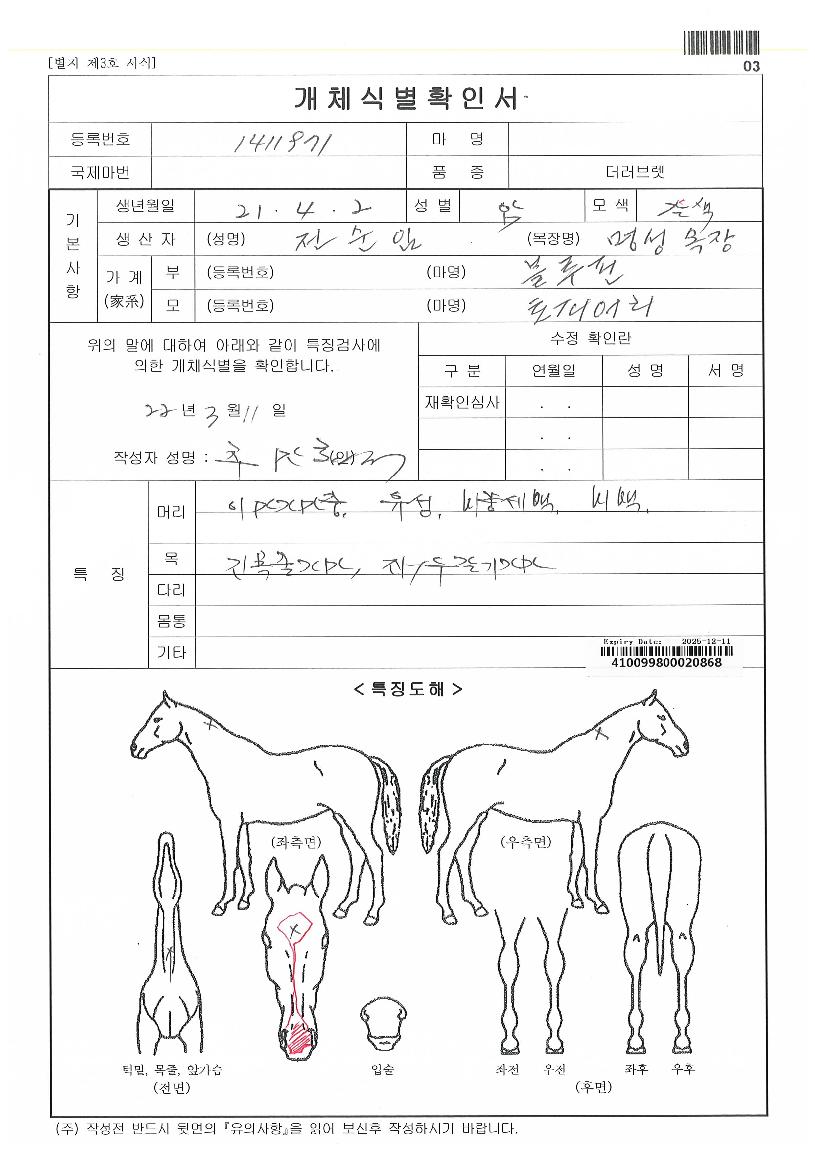 [별지 제3호 서식]
03
개체식별확인서
등록번호 마 명
국제마번 품 종 더러브렛
기본사항
생년월일 21 . 4 . 2 성 별 암 모 색 갈색
생 산 자 (성명) 전순임 (목장명) 명성목장
가 계 (家系)
부 (등록번호) (마명) 볼루전
모 (등록번호) (마명)
위의 말에 대하여 아래와 같이 특징검사에
의한 개체식별을 확인합니다.
22 년 3 월 11 일
작성자 성명 :
수정 확인란
구 분 연월일 성 명 서 명
재확인심사 . .
. .
. .
특 징
머리 유성,
목
다리
몸통
기타
Expiry Date: 2025-12-11
410099800020868
< 특징도해 >
(좌측면) (우측면)
턱밑, 목줄, 앞가슴 입술 좌전 우전 좌후 우후
(전면) (후면)
(주) 작성전 반드시 뒷면의 『유의사항』을 읽어 보신후 작성하시기 바랍니다.